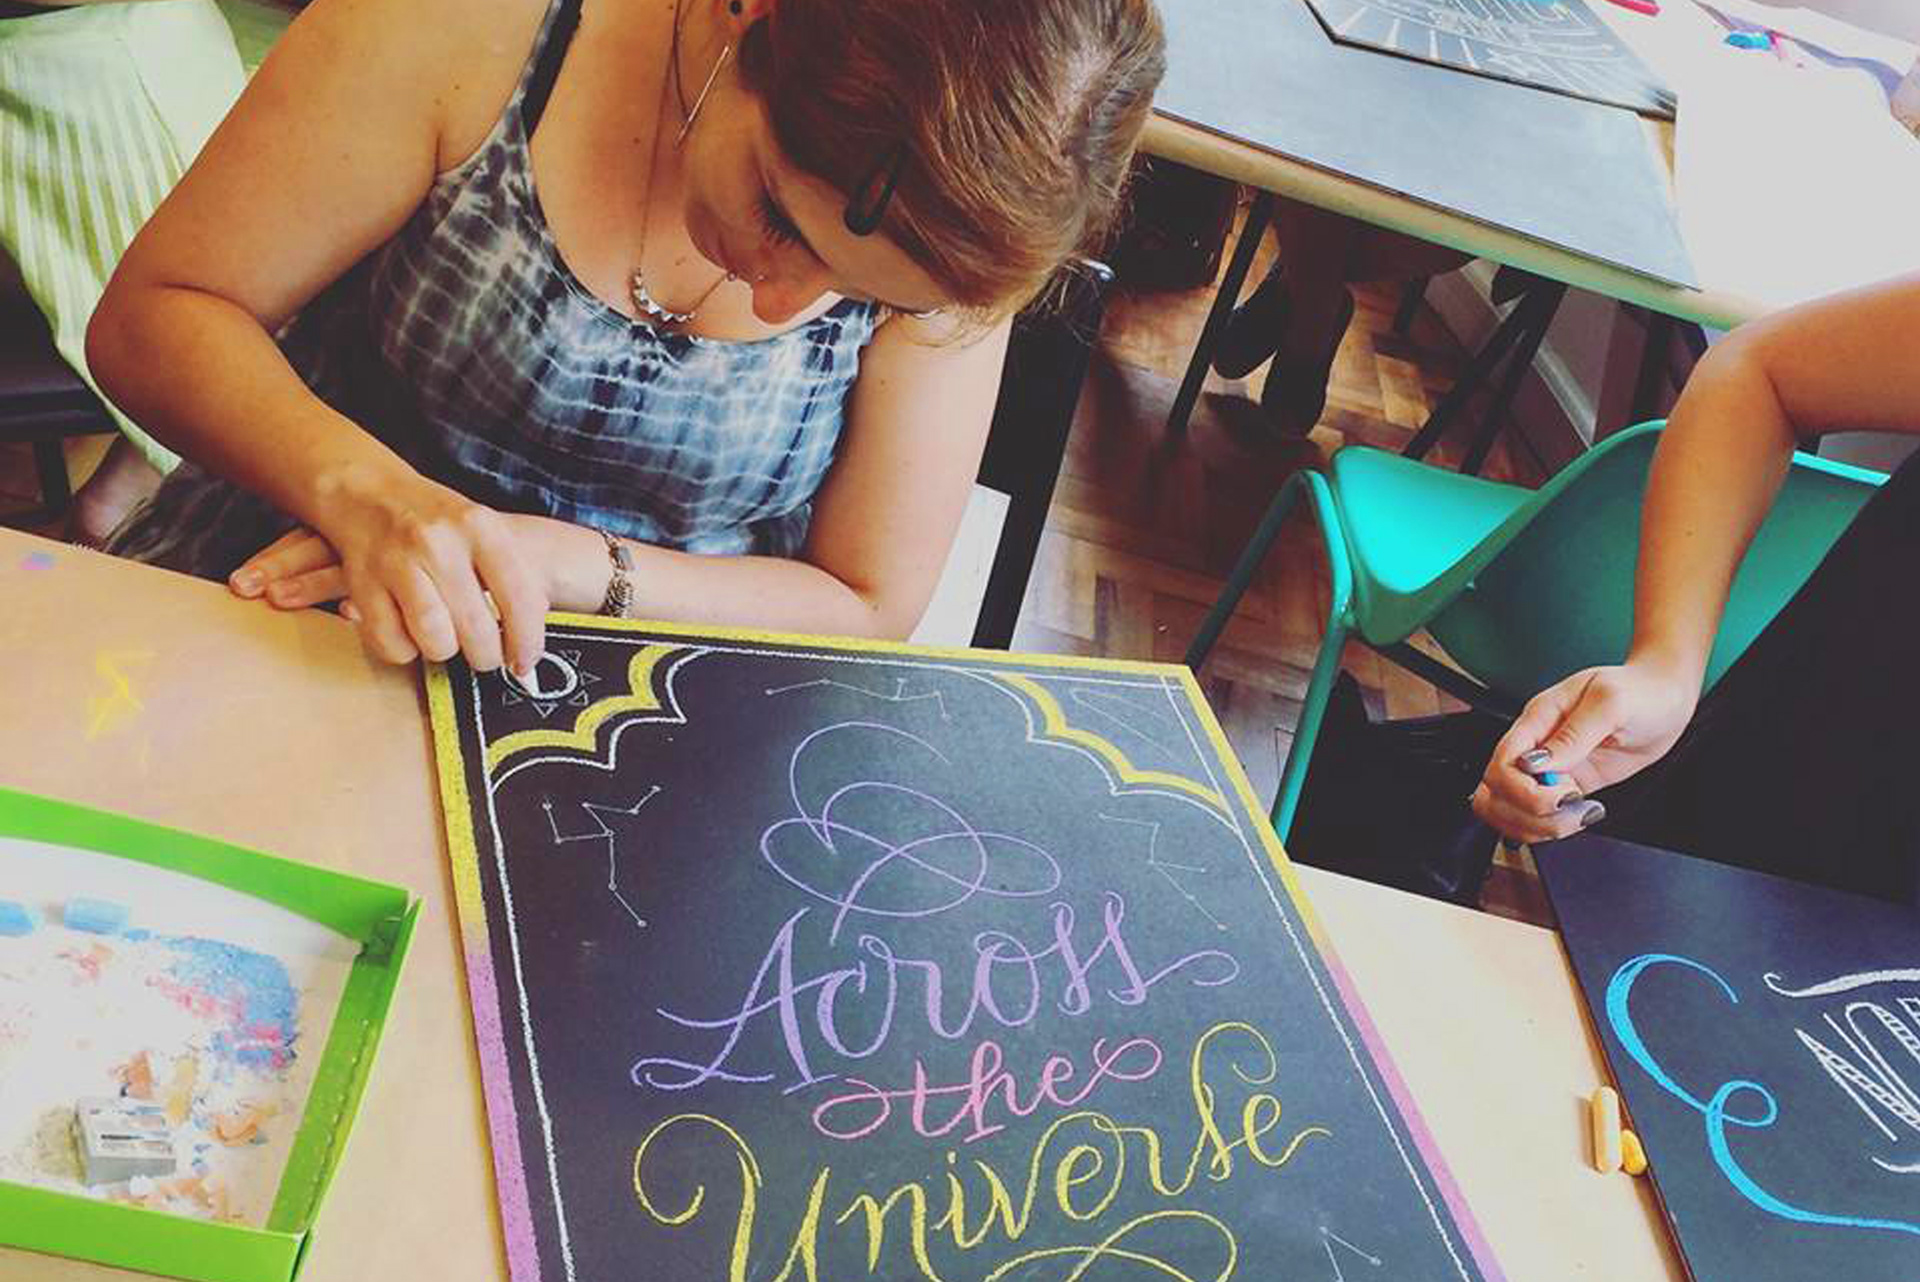 Across
the
Universe